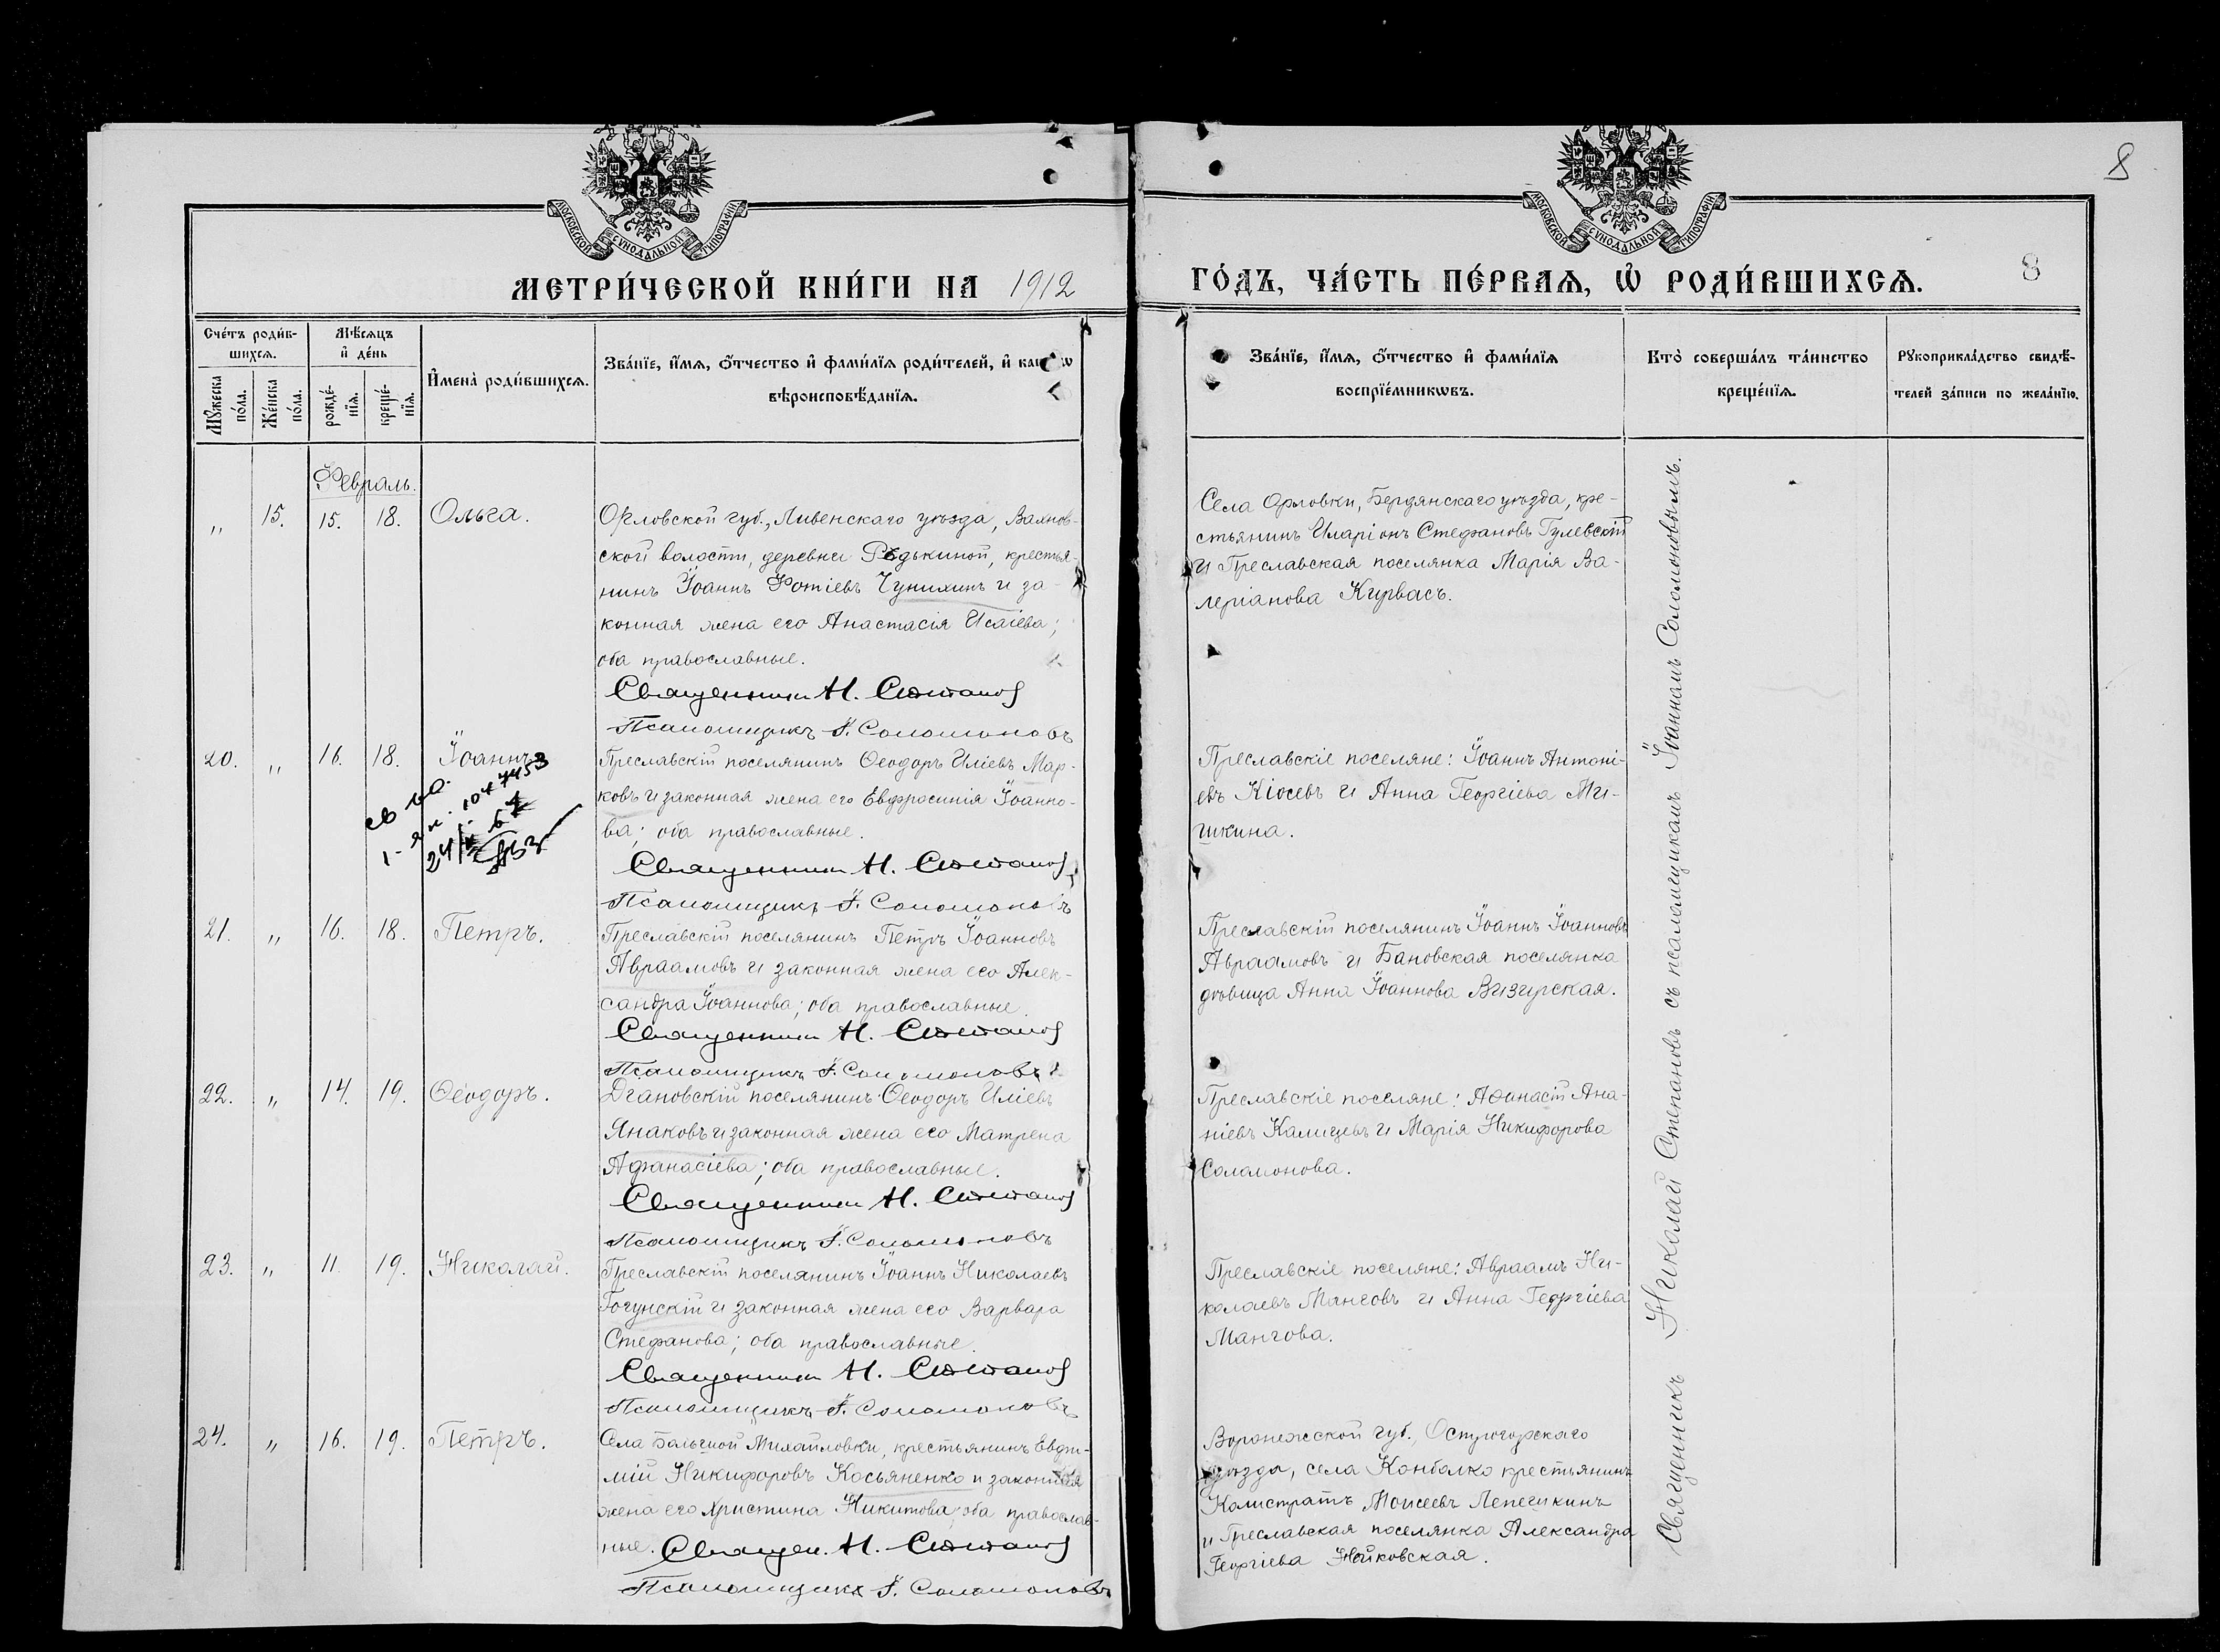 8
МОСКОВСКОЙ СѴНОДАЛЬНОЙ ТИПОГРАФІИ
МОСКОВСКОЙ СѴНОДАЛЬНОЙ ТИПОГРАФІИ
МЕТРИ́ЧЕСКОЙ КНИ́ГИ НА 1912
ГО́ДЪ, ЧА́СТЬ ПЕ́РВАѦ, Ѡ҆ РОДИ́ВШИХСѦ.
8
Сче́тъ роди́в-
шихсѧ.
Мꙋжеска
по́ла.
Же́нска
по́ла.
Мѣ́сѧцъ
и҆ де́нь
рожде́-
нїѧ.
креще́-
нїѧ.
И҆мена̀ роди́вшихсѧ.
Зва́нїе, и҆́мѧ, ѻ҆́тчество и҆ фами́лїѧ роди́телей, и҆
вѣроисповѣ́данїѧ.
Зва́нїе, и҆́мѧ, ѻ҆́тчество и҆ фами́лїѧ
воспрїе́мникѡвъ.
Кто̀ соверша́лъ та́инство
креще́нїѧ.
Рꙋкоприкла́дство свидѣ́-
телей за́писи по жела́нїю.
Февраль.
„ 15. 15. 18. Ольга.
Орловской губ., Ливенскаго уѣзда,
ской волости, деревни Рѣдькиной, крестья-
нинъ Іоаннъ Фотіевъ Чунихинъ и за-
конная жена его Анастасія Исаіева;
оба православные.
Священникъ Н. Степановъ
Псаломщикъ І. Соломоновъ
Села Орловки, Бердянскаго уѣзда, кре-
стьянинъ Иларіонъ Стефановъ Гулевскій
и Преславская поселянка Марія Ва-
леріанова Курвасъ.
20. „ 16. 18. Іоаннъ
1047453
Преславскій поселянинъ Ѳеодоръ Иліевъ Мар-
ковъ и законная жена его Евфросинія Іоанно-
ва; оба православные.
Священникъ Н. Степановъ
Псаломщикъ І. Соломоновъ
Преславскіе поселяне: Іоаннъ Антоні-
евъ Кіосевъ и Анна Георгіева Ми-
шкина.
21. „ 16. 18. Петръ.
Преславскій поселянинъ Петръ Іоанновъ
Авраамовъ и законная жена его Алек-
сандра Іоаннова; оба православные.
Священникъ Н. Степановъ
Псаломщикъ І. Соломоновъ
Преславскій поселянинъ Іоаннъ Іоанновъ
Авраамовъ и Бановская поселянка
дѣвица Анна Іоаннова Визирская.
22. „ 14. 19. Ѳеодоръ.
Діановскій поселянинъ Ѳеодоръ Иліевъ
Янаковъ и законная жена его Матрена
Афанасіева; оба православные.
Священникъ Н. Степановъ
Псаломщикъ І. Соломоновъ
Преславскіе поселяне: Аѳанасій Ана-
ніевъ Калицевъ и Марія Никифорова
Соломонова.
23. „ 11. 19. Николай.
Преславскій поселянинъ Іоаннъ Николаевъ
Гогунскій и законная жена его Варвара
Стефанова; оба православные.
Священникъ Н. Степановъ
Псаломщикъ І. Соломоновъ
Преславскіе поселяне: Авраамъ Ни-
колаевъ Манговъ и Анна Георгіева
Мангова.
24. „ 16. 19. Петръ.
Села Большой Михайловки, крестьянинъ Евфи-
мій Никифоровъ Косьяненко и законная
жена его Христина Никитова; оба православ-
ные. Священ. Н. Степановъ
Псаломщикъ І. Соломоновъ
Воронежской губ., Острогожскаго
уѣзда, села Конболко крестьянинъ
Калистратъ Моисеевъ Лепешкинъ
и Преславская поселянка Александра
Георгіева Нойковская.
Священникъ Николай Степановъ съ псаломщикомъ Іоанномъ Соломоновымъ.